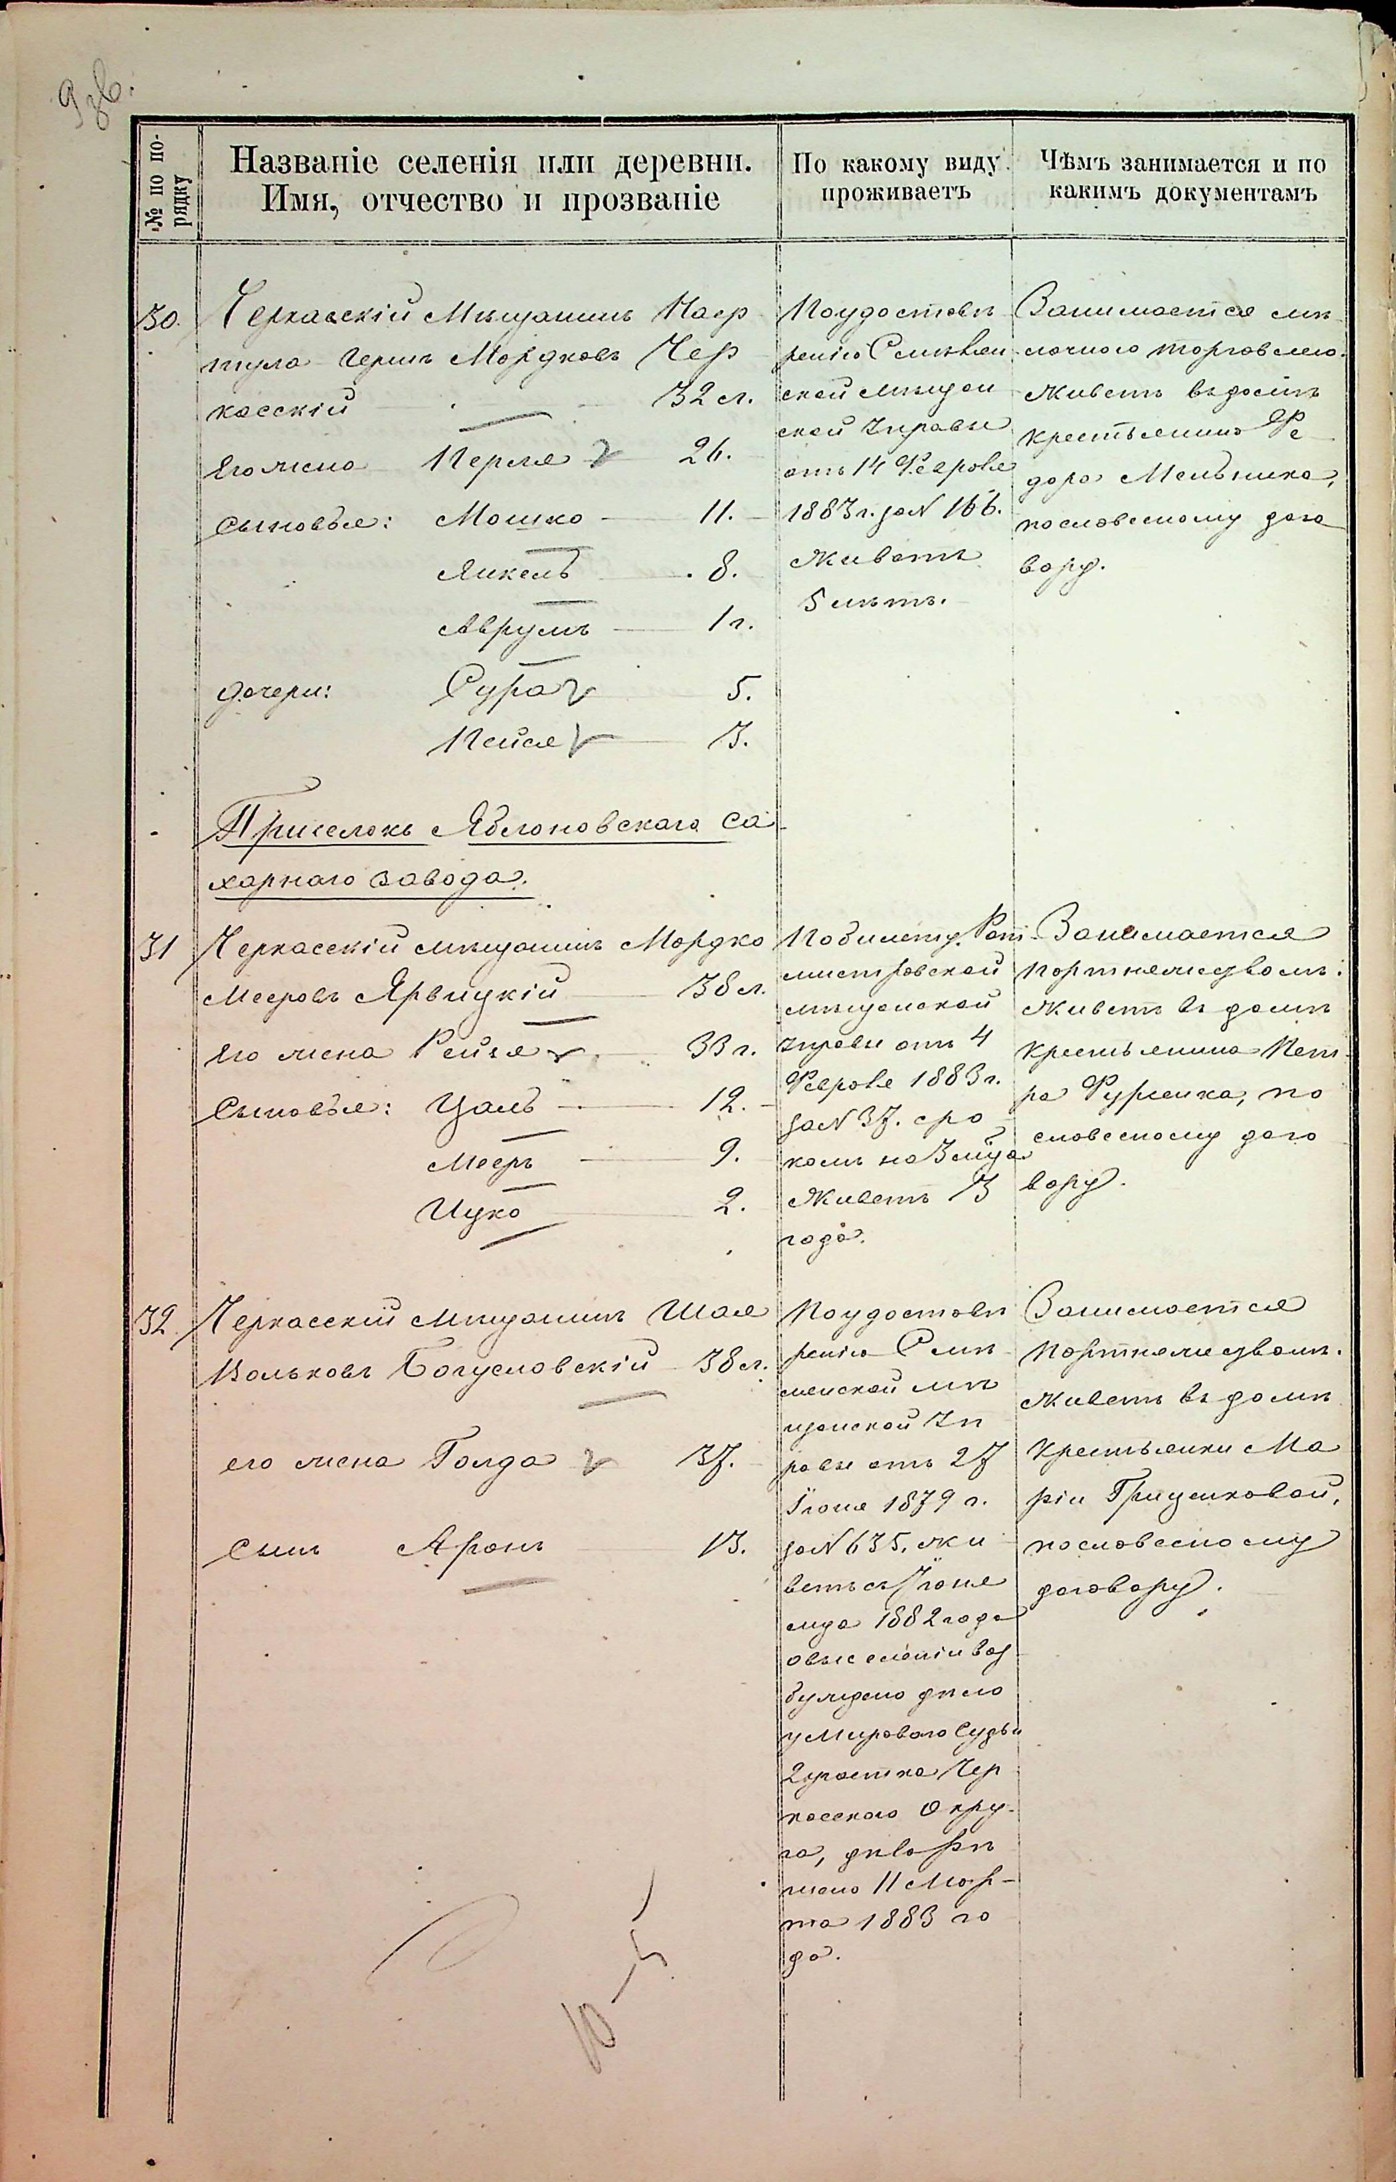 № по по-
рядку
Названіе селенія или деревни.
Имя, отчество и прозваніе
По какому виду
проживаетъ
Чѣмъ занимается и по
какимъ документамъ
30.
Черкасскій Мѣщанинъ Наф
тула Гершъ Мордковъ Чер
касскій 32 л.
Его жена Перля 26.
Сыновья: Мошко 11.
Янкель 8.
Аврумъ 1 г.
дочери: Сура 5.
Пейся 3.
По удостовѣ
ренію Смѣлян
ской мѣщан
ской Управы
отъ 14 Февраля
1883 г. за № 166.
Живетъ
5 лѣтъ.
Занимается мѣ
лочною торговлею.
Живетъ въ домѣ
крестьянина Фе
дора Мельника,
по словесному дого
вору.
Приселокъ Яблоновскаго Са
харнаго завода.
31
Черкасскій мѣщанинъ Мордко
Мееровъ Ярвицкій 38 л.
Его жена Рейзя 33 г.
Сыновья: Цаль 12.
Мееръ 9.
Ицко 2.
По билету Рот
мистровской
мѣщанской
управы отъ 4
Февраля 1883 г.
за № 37. сро
комъ на 3 м-ца
Живетъ 3
года.
Занимается
портняжествомъ.
Живетъ въ домѣ
крестьянина Пет
ра Фурсика, по
словесному дого
вору.
32
Черкасскій Мѣщанинъ Шая
Вольковъ Богуславскій 38 л.
его жена Голда 37.
Сынъ Аронъ 13.
По удостовѣ
ренію Смѣ
лянской мѣ
щанской Уп
равы отъ 27
Іюня 1879 г.
за № 635. жи
ветъ съ Іюня
м-ца 1882 года
о выселеніи воз
буждено дѣло
у Мироваго Судьи
2 участка Чер
касскаго Окру-
га, дѣло рѣ
шено 11 Мар-
та 1883 го
да.
Занимается
портняжествомъ.
Живетъ въ домѣ
крестьянки Ма
ріи Гриценковой,
по словесному
договору.
10–5